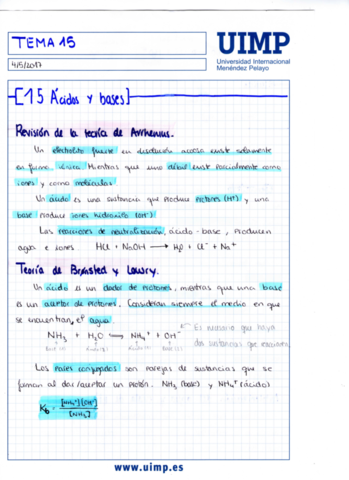 TEMA 15
UIMP
Universidad Internacional
Menéndez Pelayo
4/5/2017
[15 Ácidos y bases]
Revisión de la teoría de Arrhenius.
Un electrolito fuerte en disolución acuosa existe solamente
en forma iónica. Mientras que uno débil existe parcialmente como
iones y como moléculas.
Un ácido es una sustancia que produce protones (H⁺) y una
base produce iones hidroxilo (OH⁻)
Las reacciones de neutralización, ácido-base, producen
agua e iones. HCl + NaOH → H₂O + Cl⁻ + Na⁺
Teoría de Brønsted y Lowry.
Un ácido es un dador de protones, mientras que una base
es un aceptor de protones. Consideran siempre el medio en que
se encuentran, el agua.
Es necesario que haya
NH₃ + H₂O → NH₄⁺ + OH⁻
dos sustancias que reaccionen
Los pares conjugados son parejas de sustancias que se
forman al dar/aceptar un protón. NH₃ (base) y NH₄⁺ (ácido)
K_b = [NH₄⁺][OH⁻] / [NH₃]
www.uimp.es